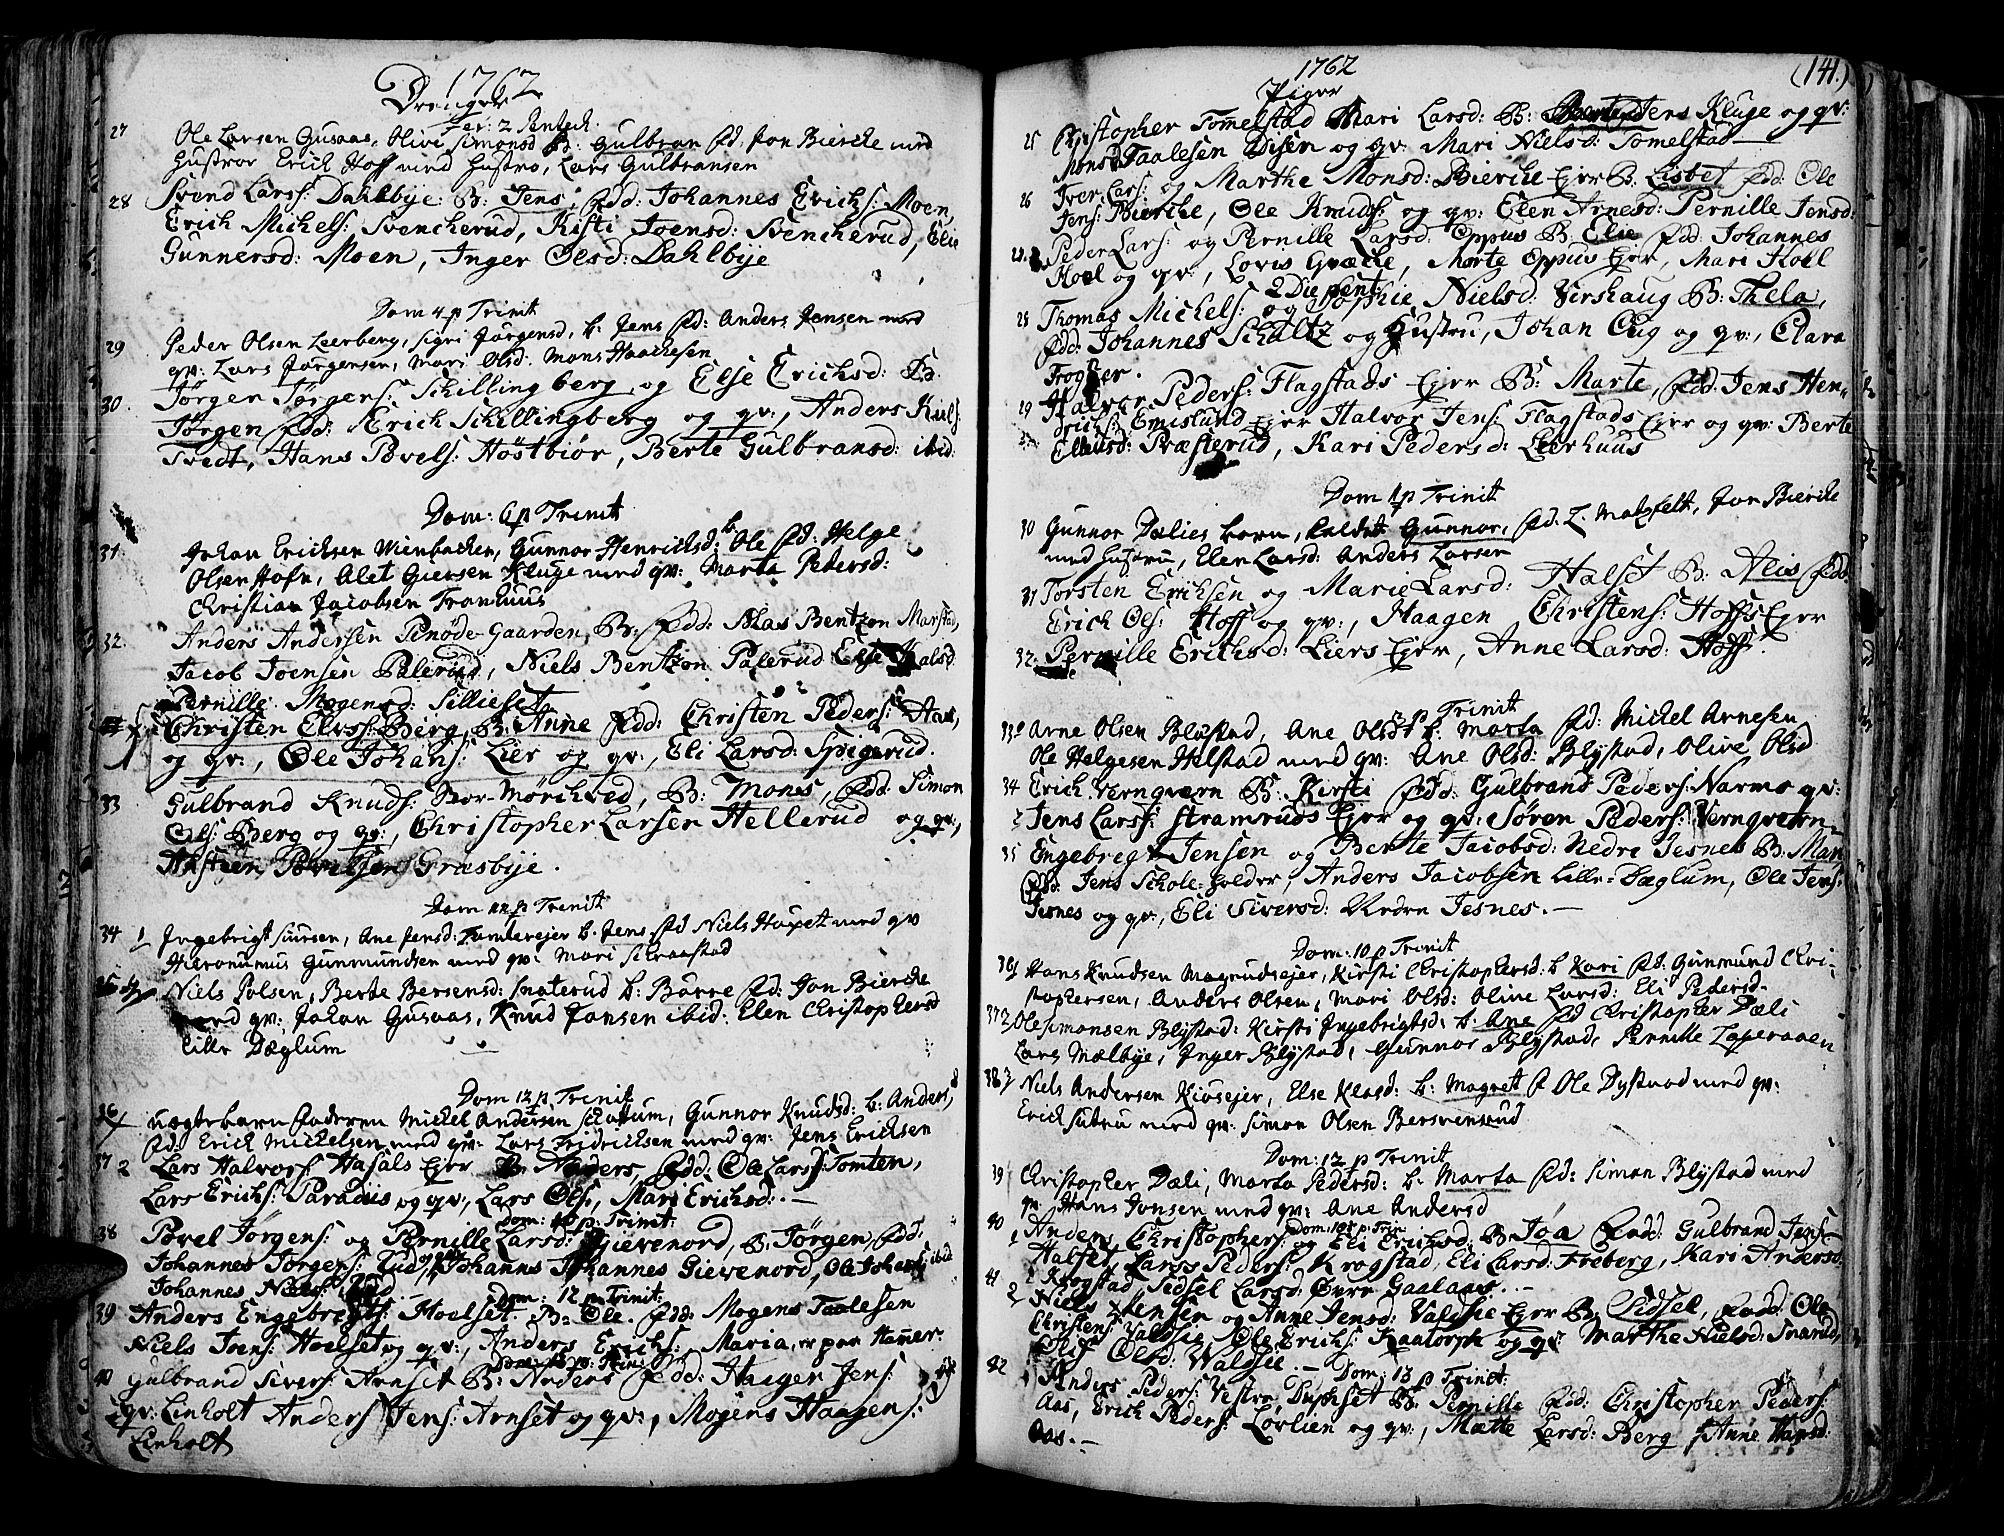 1762
Drenger
Fer: 2 Pentech:
27 Ole Larsen Gusaas, Olive Simonsd B: Gulbran Fd: Jon Biercke med
Hustroe Erich Hoff med Hustro, Lars Gulbransen
28 Svend Larss: Dahlbÿe: B: Jens, Fdd: Johannes Erichs: Moen,
Erich Michels: Svencherud, Kisti Joensd: Svencherud, Elie
Gunnersd: Moen, Inger Olsd: Dahlbÿe
Dom 4 p Trinit
29 Peder Olsen Leerberg, Sigri Jørgensd, b: Jens Fd: Anders Jensen med
qv: Lars Jørgensen, Mari Olsd: Mons Haachesen
30. Jørgen Jørgens: Schillingberg og Else Erichsd: B:
Jørgen Fdd: Erich Schillingberg og qv:, Anders Kuls
Tvedt, Hans Povels: Høstbiør, Berte Gulbransd: ibid:
Dom: 6 p Trinit
31. Johan Ericksen Wienbachen, Gunnor Henrichsd: b Ole Fd: Helge
Olsen Hofn, Alet Giersen Kluge med qv: Marta Pedersd:
Christian Jacobsen Tronhuus
32. Anders Andersen Penøde-Gaarden, B: Fdd: Mas Bentzon Marstad,
Jacob Joensen Palerud, Niels Bentzon Palerud Else
Pernille Mogensd: Sillieset
Christen Elvss: Berg, B: Anne Fdd: Christen Peders: Aas,
og qv:, Ole Johans: Lier og qv:, Eli Larsd: Spigerud.
33 Gulbrand Knuds: Nor-Mörchved, B: Mones, Fdd: Simon
Ols: Berg og qv:, Christopher Larsen Hellerud og qv:,
Græsbÿe.
Dom 11 p Trinit
34 1 Ingebrigt Siursen, Ane Jensd: B: Jens Fd Niels Huset med qv
Hieronimus Gunmundsen med qv: Mari Schraastad
35 Niels Polsen, Berte Bersensd: Snaterud b: Børre Fd: Jon Biercke
med qv: Johan Gusaas, Knud Jansen ibid: Elen Christophersd
Lille Dæglum
Dom 12 p Trinit
36 uægte barn Faderen Michel Andersen, Gunnor Knudsd: b: Anders,
Fd: Erich Michelsen med qv: Lars Fridrichsen med qv: Jens Ericksen
37 2 Lars Halvors Hasals Ejer B: Anders, Fdd: Ole Larss: Tomten,
Lars Erichs: Paradiis og qv:, Lars Ols:, Mari Erichsd: —
Dom: 10 p: Trinit:
38 Povel Jørgens: og Pernille Larsd: Gievenord, B: Jørgen, Fdd:
Johannes Jørgens: Lud og qv:, Johannes Gievenord, Ole Johans: ibid:
Johannes Niels:
Dom: 12 p Trinit:
39 Anders Engebregts: Hoelset. B: Ole. Fdd: Mogens Taalesen
Niels Joens: Hoelset og qv:, Anders Erichs:, Maria, paa Hamer:
Dom: 13 p: Trin:
40 Gulbrand Sivers: Arnset B: Anders Fdd: Haagen Jens:
qv: Linholt Anders Jens: Arnset og qv:, Mogens Haagens:
Linholt
1762
(141.)
Piger
25 Christopher Tomelstad Mari Larsd: B: Jens Kluge og qv:
Mons Taalesen Disen og qv: Mari Nielsd: Tomelstad —
26 Iver Lars: og Marthe Monsd: Biercke Ejer B: Lisbet Fdd: Ole
Jens: Biercke, Ole Knuds: og qv: Elen Arnesd: Pernille Jensd:
Peder Lars: og Pernille Larsd: Oppus B: Elie Fdd: Johannes
Hoel og qv:, Lovis Græche, Marte Oppus Ejer, Mari Hoel
2 Die pent:
28 Thomas Michels: og Sophie Nielsd: Virshaug B: Thela,
Fdd: Johannes Schultz og Hustru, Johan Cug og qv:, Clara
Trogner.
29 Halvor Peders: Flagstads Ejer B: Marte, Fdd: Jens Hen-
richs: Emislund Ejer Halvor Jens: Flagstads Ejer og qv: Berte
Ellensd: Præsterud, Kari Pedersd: Leerhuus
Dom 1 p Trinit
30 Gunnor Dælies barn, kaldet Gunnor, Fd: L. Matzfelt, Jon Biercke
med Hustru, Elen Larsd: Anders Larsen
31 Torsten Erichsen og Marie Larsd: Halset B: Alis Fdd:
Erich Ols: Hoff og qv:, Haagen Christens: Hoffs Ejer
32. Pernille Erichsd: Liers Ejer, Anne Larsd: Hoff.
2 p Trinit
33 Arne Olsen Blystad, Ane Olsdt b: Marta Fd: Michel Arnesen
Ole Helgesen Helstad med qv: Ane Olsd: Blystad, Olive Olsd
34 Erich Vernqværn B: Kirsti Fdd: Gulbrand Peders: Narmo qv:
Jens Larss: Stramruds Ejer og qv: Søren Peders: Vernqværn —
35 Engebregt Jensen og Berte Jacobsd: Nedre Jesnes B: Mari
Fdd: Jens Schole-holder, Anders Jacobsen Lille-Dæglum, Ole Jens:
Jesnes og qv:, Eli Siversd: Nedre Jesnes. —
Dom: 10 p Trinit
36 Hans Knudsen Magrudsejer, Kirsti Christophersd: b Kari Fd: Gunmund Chri-
stophersen, Anders Olsen, Mari Olsd: Oline Larsd: Eli Pedersd-
37 2 Ole Simonsen Blystad: Kirsti Ingebrigtsd: b. Ane Fd Christopher Dæli
Lars Mælbye, Inger Blystad, Gunnor Blystad, Pernille Lageraaen
38 3 Niels Andersen Kiosejer, Else Klasd: b: Magret F Ole Dystvad med qv:
Erich Subru med qv: Simon Olsen Bersvensrud
Dom: 12 p Trinit
39 Christopher Dæli, Marta Pedersd: b: Marta Fd: Simon Blystad med
qv: Hans Jonsen med qv: Ane Andersd
Dom: 10 p: Trin
40 1 Anders Christophers: og Eli Erichsd: B: Joa Fadd: Gulbrand Jens-
Halset, Lars Peders: Krogstad, Eli Larsd: Freberg, Kari Andersd:
Krogstad Sidsel Larsd: Øvre Gaalaas. —
41 2 Niels Jensen og Anne Jensd: Valdsie Ejer B: Sidsel, Fadd: Ole
Christens: Valdsie, Ole Erichs: Kaatorph og qv: Marthe Nielsd: Snarud,
Olsd: Waldsie. —
Dom: 13 p Trinit:
42 Anders Peders: Vestre Dyphset B: Pernille Fdd: Christopher Peders:
Aas, Erich Peders: Løvlien og qv:, Mætte Larsd: Berg, Anne Hansd:
Aas. —